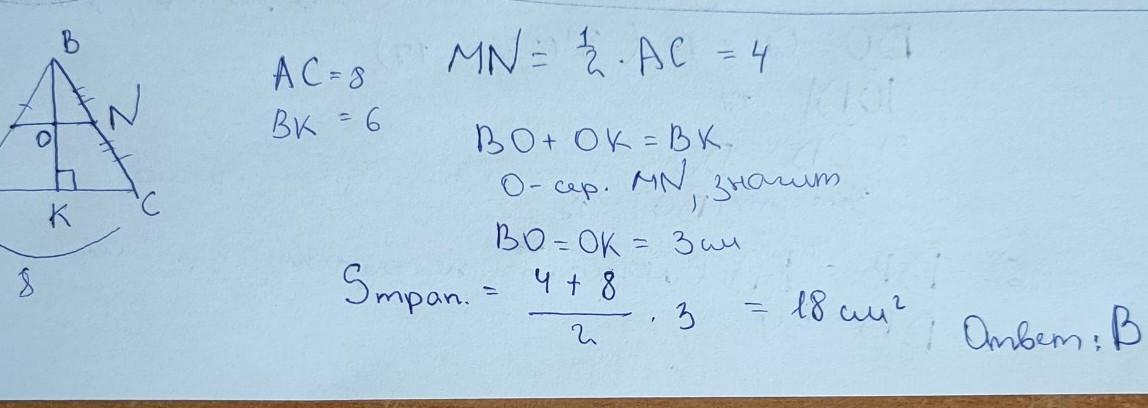 B
N
O
K
C
8
AC = 8
BK = 6
MN = 1/2 · AC = 4
BO + OK = BK.
O - сер. MN, значит
BO = OK = 3 см
Sтрап. = (4 + 8)/2 · 3 = 18 см²
Ответ: В